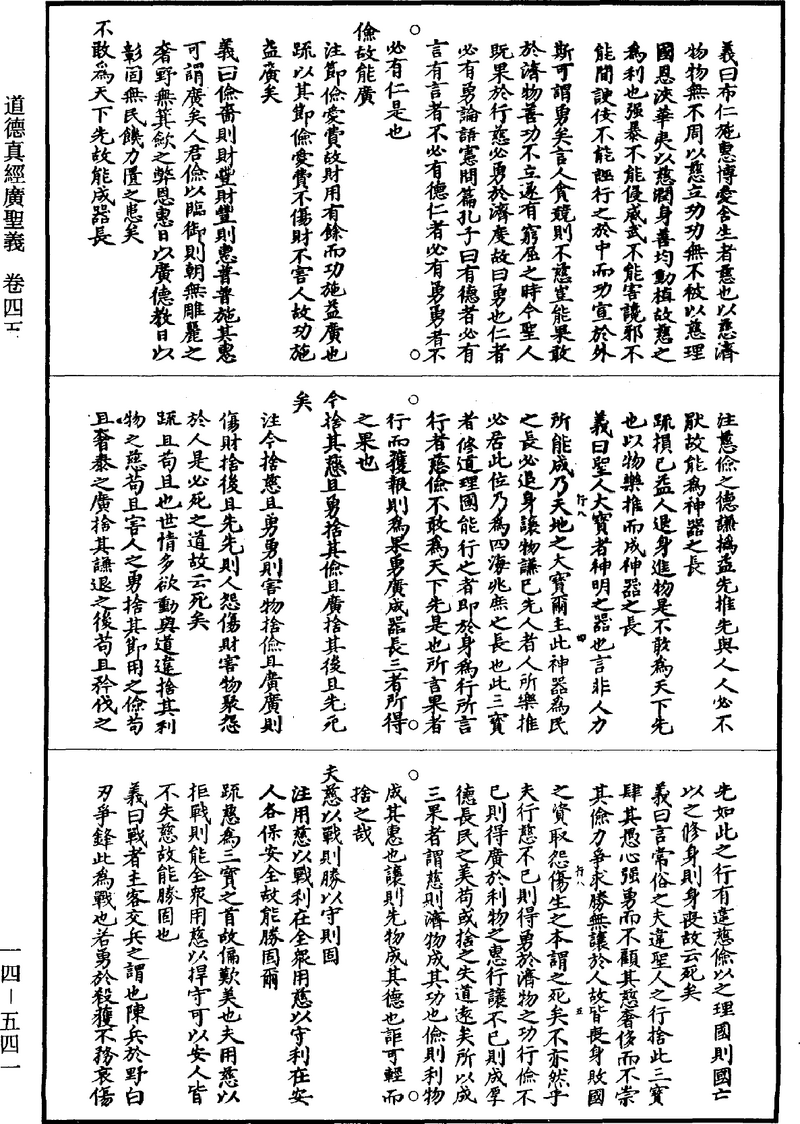 道德真經廣聖義 卷四五
一四—五四一
義曰布仁施惠博愛含生者慈也以慈濟
物物無不周以慈立功功無不被以慈理
國恩浹華夷以慈潤身善均動植故慈之
為利也强暴不能侵威武不能害讒邪不
能間諛佞不能誣行之於中而功宣於外
斯可謂勇矣言人貪競則不慈豈能果敢
於濟物善功不立遂有窮屈之時今聖人
既果於行慈必勇於濟度故曰勇也仁者
必有勇論語憲問篇孔子曰有德者必有
言有言者不必有德仁者必有勇勇者不
必有仁是也
儉故能廣
注節儉愛費故財用有餘而功施益廣也
疏以其節儉愛費不傷財不害人故功施
益廣矣
義曰儉嗇則財豐財豐則惠普普施其惠
可謂廣矣人君儉以臨御則朝無雕麗之
奢野無箕歛之弊恩惠日以廣德教日以
彰固無民饑力匱之患矣
不敢為天下先故能成器長
注慈儉之德謙撝益先推先與人人必不
猒故能為神器之長
疏損已益人退身進物是不敢為天下先
也以物樂推而成神器之長
義曰聖人大寶者神明之器也言非人力
所能成乃天地之大寶爾主此神器為民
之長必退身讓物謙已先人者人所樂推
必居此位乃為四海兆庶之長也此三寶
者修道理國能行之者即於身為行所言
行者慈儉不敢為天下先是也所言果者
行而獲報則為果勇廣成器長三者所得
之果也
今捨其慈且勇捨其儉且廣捨其後且先死
矣
注今捨慈且勇勇則害物捨儉且廣廣則
傷財捨後且先先則人怨傷財害物聚怨
於人是必死之道故云死矣
疏且苟且也世情多欲動與道違捨其利
物之慈苟且害人之勇捨其節用之儉苟
且奢泰之廣捨其謙退之後苟且矜伐之
先如此之行有違慈儉以之理國則國亡
以之修身則身喪故云死矣
義曰言常俗之夫違聖人之行捨此三寶
肆其愚心强勇而不顧其慈奢侈而不崇
其儉力爭求勝無讓於人故皆喪身敗國
之資取怨傷生之本謂之死矣不亦然乎
夫行慈不已則得勇於濟物之功行儉不
已則得廣於利物之惠行讓不已則成厚
德長民之美苟或捨之失道遠矣所以成
三果者謂慈則濟物成其功也儉則利物
成其惠也讓則先物成其德也詎可輕而
捨之哉
夫慈以戰則勝以守則固
注用慈以戰利在全衆用慈以守利在安
人各保安全故能勝固爾
疏慈為三寶之首故偏歎美也夫用慈以
拒戰則能全衆用慈以捍守可以安人皆
不失慈故能勝固也
義曰戰者主客交兵之謂也陳兵於野白
刃爭鋒此為戰也若勇於殺獲不務哀傷